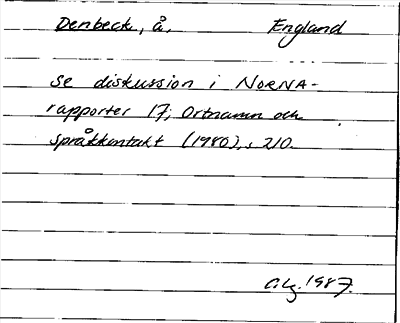 Denbeck, å. England
se diskussion i NORNA-
rapporter 17; Ortnamn och
språkkontakt (1980), s. 210.
C.Lg. 1987.